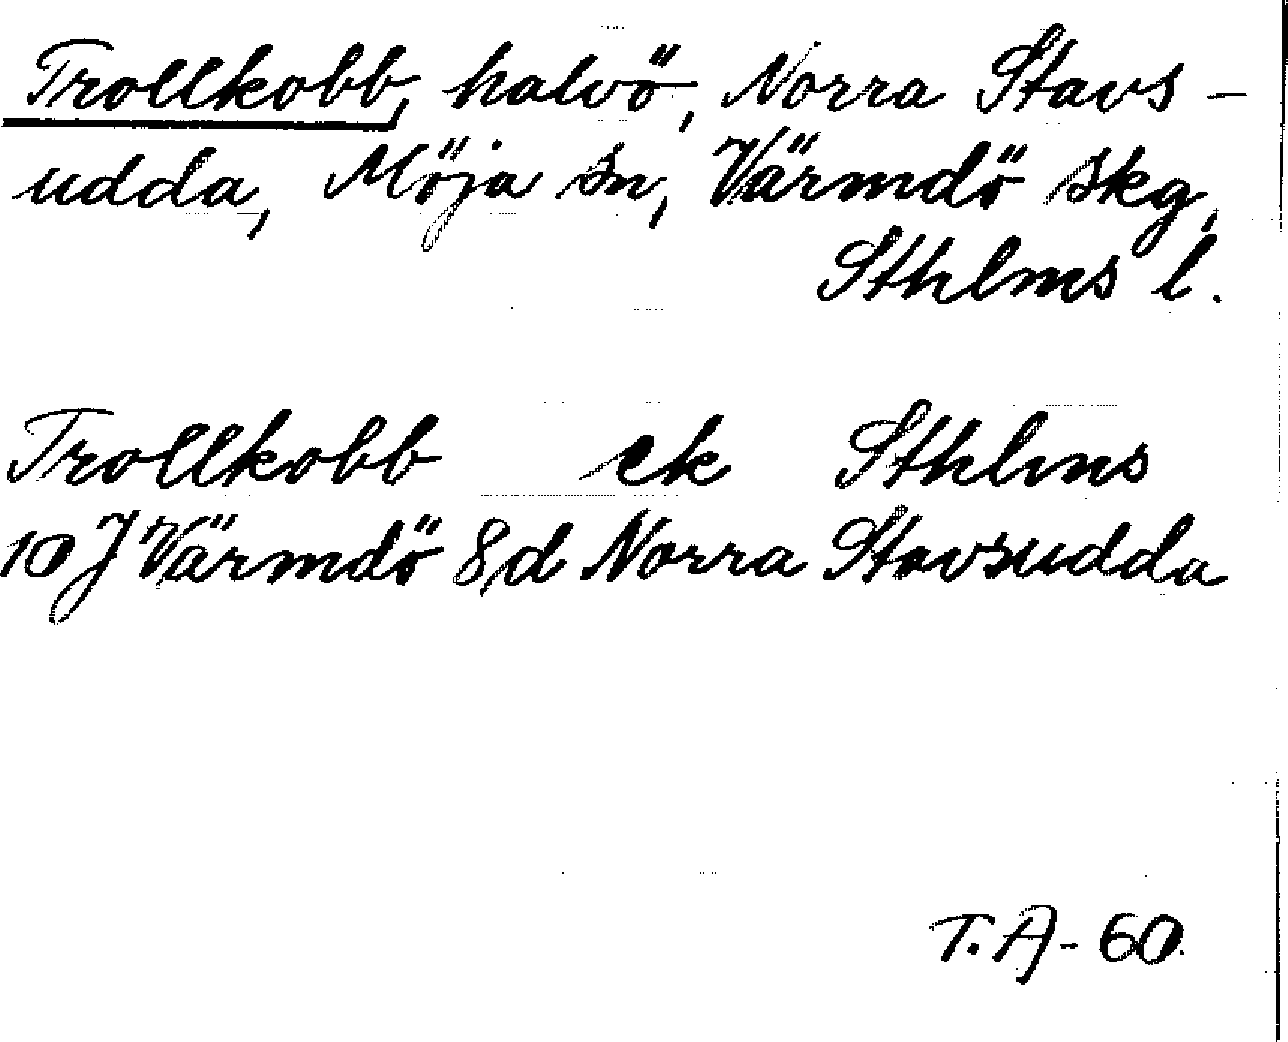 Trollkobb, halvö, Norra Stavs-
udda, Möja sn, Värmdö skg,
Sthlms l.
Trollkobb ek Sthlms
10 J Värmdö 8d Norra Stavsudda
T. A - 60